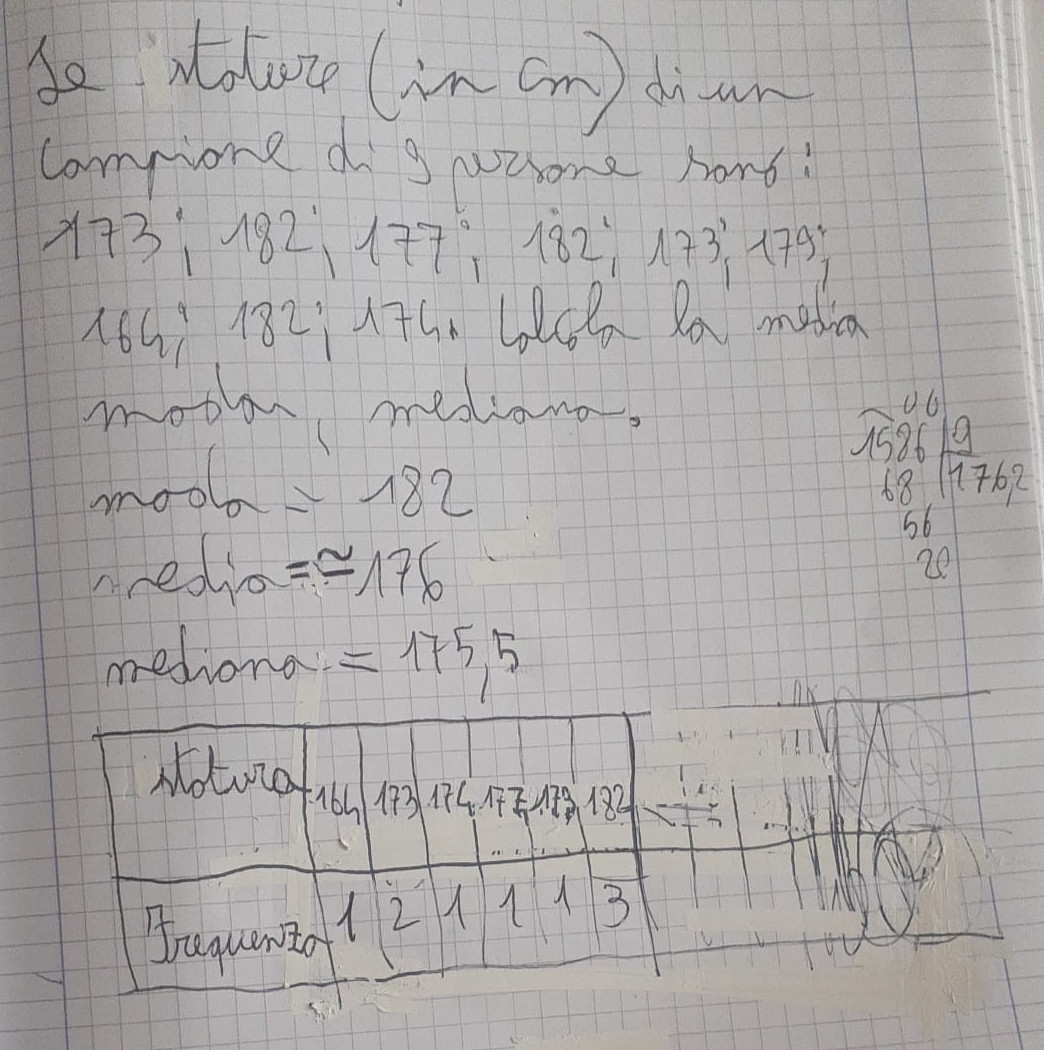 Le stature (in cm) di un
campione di 9 persone sono:
173; 182; 177; 182; 173; 179;
164; 182; 174. Calcola la media
moda, mediana.
1586 9
68 176,2
56
20
moda = 182
media = ≃ 176
mediana = 175,5
statura 164 173 174 177 179 182
Frequenza 1 2 1 1 1 3